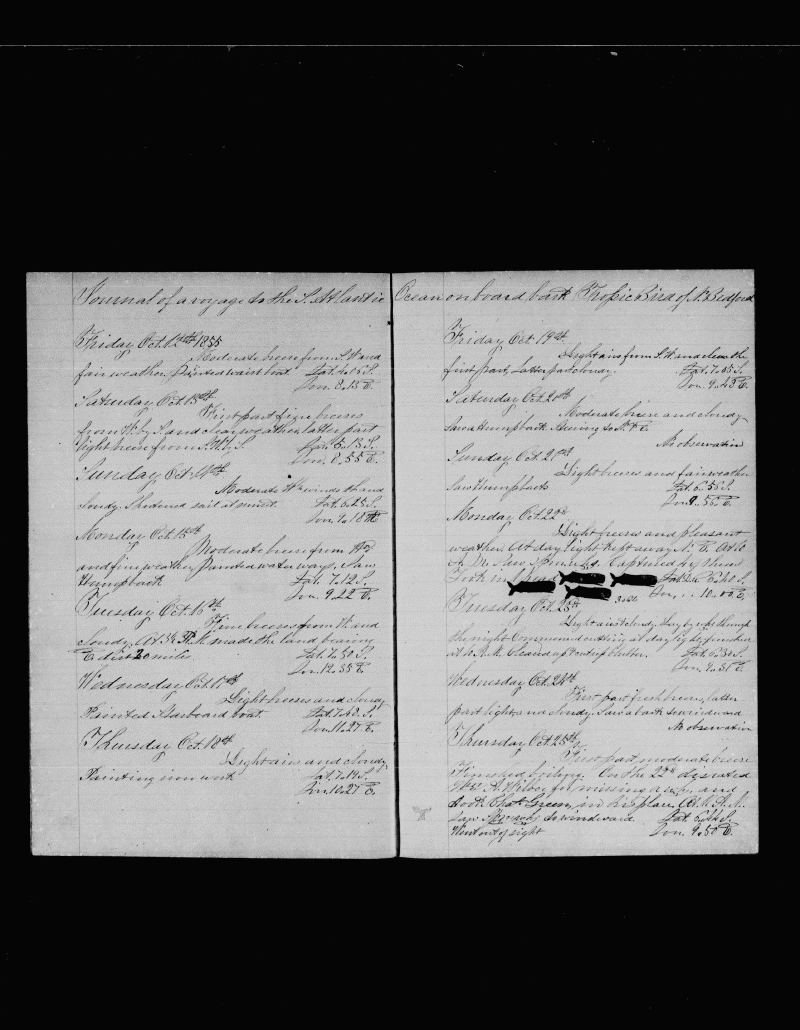 Journal of a voyage to the S. Atlantic Ocean on board bark Tropic Bird of N. Bedford
Friday Oct. 12th 1855
Moderate breeze from S.W. and
fair weather. Painted waist boat. Lat. 4..05 S.
Lon. 8..13 E.
Saturday Oct. 13th
First part fine breezes
from W. by S. and clear weather, latter part
light breeze from S.W. by S. Lat. 5..13 S.
Lon. 8..55 E.
Sunday Oct. 14th
Moderate winds and
cloudy. Shortened sail at sunset. Lat. 6..25 S.
Lon. 9..18 E.
Monday Oct. 15th
Moderate breeze from
and fine weather. Painted waterways. Saw
Humpback Lat. 7..12 S.
Lon. 9..22 E.
Tuesday Oct. 16th
Fine breezes from W. and
cloudy. At P.M. made the land bearing
E. dist 20 miles Lat. 7..50 S.
Lon. 12..35 E.
Wednesday Oct. 17th
Light breezes and cloudy
Painted Starboard boat. Lat. 7..43 S.
Lon. 11..27 E.
Thursday Oct. 18th
Light airs and cloudy
Painting iron work Lat. 7..14 S.
Lon. 10..27 E.
Friday Oct. 19th
Light airs from S.W. and clear the
first part, latter part cloudy. Lat. 7..05 S.
Lon. 9..48 E.
Saturday Oct. 20th
Moderate breeze and cloudy
Saw a Humpback. Steering to N. & E.
No observation
Sunday Oct. 21st
Light breezes and fair weather
Saw Humpbacks Lat. 6..56 S.
Lon. 9..56 E.
Monday Oct. 22nd
Light breeze and pleasant
weather. At day light kept away N. E. At 10
A.M. Saw Captured 4 of them
Took in head Lat. 6..40 S.
Lon. 10..00 E.
Tuesday Oct. 23rd
Light airs & cloudy. Lay by ship through
the night. Commenced cutting at day light, finished
at 10 A.M. Cleared up Lat. 6..30 S.
Lon. 9..51 E.
Wednesday Oct. 24th
First part fresh breeze, latter
part light and cloudy. Saw a bark to windward
No observation
Thursday Oct. 25th
First part moderate breeze
Finished boiling. On the 22nd
for missing a wh. and
took Chas. Green, in his place. At
Saw to windward Lat. 6..14 S.
Went out of sight Lon. 9..50 E.